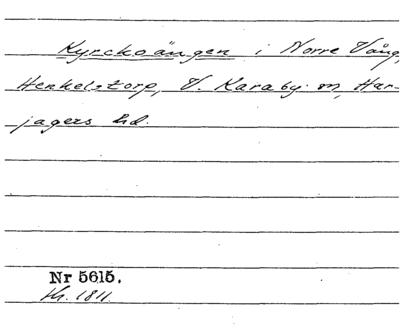 Kyrckoängen i Norre Vång,
Henkelstorp, V. Karaby sn, Har-
jagers hd.
Nr 5615.
Kr. 1811.